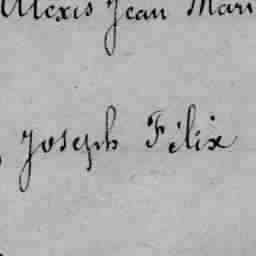 Alexis Jean Mari
Joseph Félix